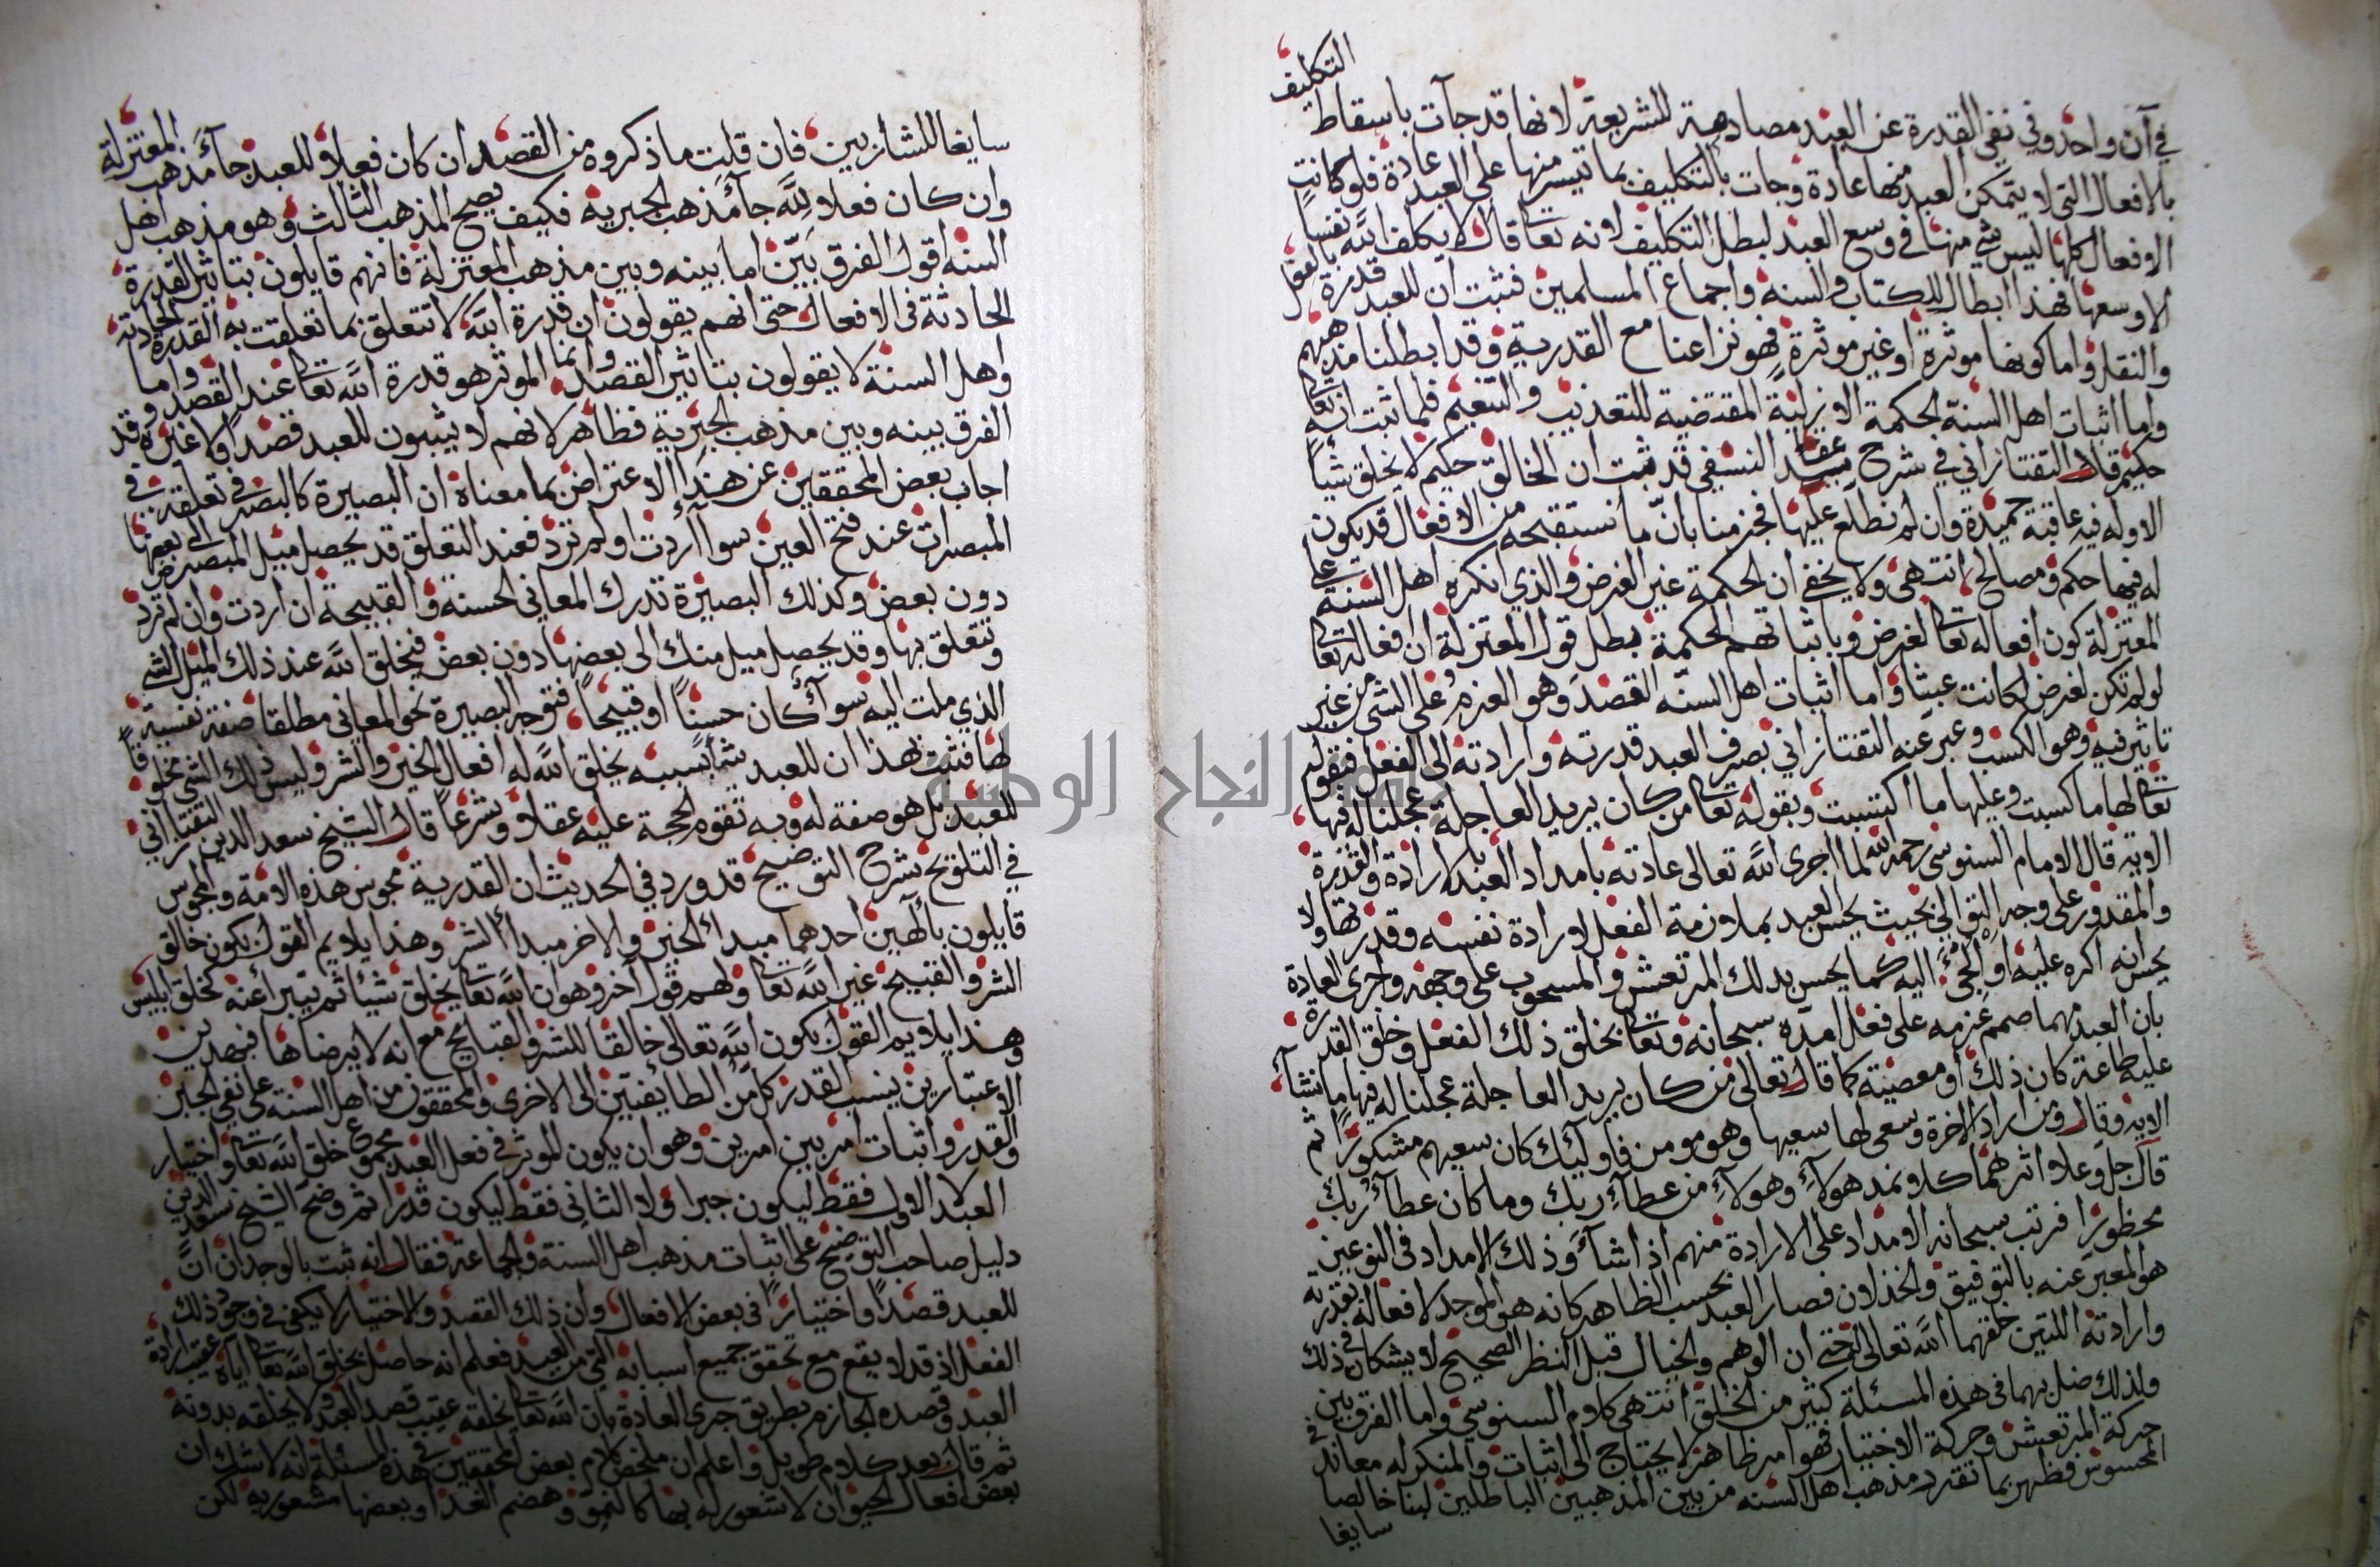 في آن واحد وفي نفي القدرة عن العبد مصادمة للشريعة لانها قد جآت باسقاط التكليف
بالافعال التي لا يتمكن العبد منها عادة وجات بالتكليف بما تيسر منها على العبد عادة فلو كانت
الافعال كلها ليس شي منها في وسع العبد لبطل التكليف لانه تعا قال لا يكلف الله نفسا
الا وسعها فهذا ابطال للكتاب والسنة واجماع المسلمين فثبت ان للعبد قدرة بالعقل
والنقل واما كونها موثرة او غير موثرة فهو نزاعنا مع القدرية وقد ابطلنا مذهبهم
واما اثبات اهل السنة لحكمة الازلية المقتضية للتعذيب والتنعيم فلما ثبت انه تعا
حكيم قال التفتازاني في شرح عقائد النسفي قد ثبت ان الخالق حكيم لا يخلق شيأ
الا وله فيه عاقبة حميدة وان لم نطلع عليها فجزمنا بان ما نستقبحه من الافعال قد يكون
له فيها حكم ومصالح انتهى ولا يخفى ان الحكمة غير الغرض والذي انكره اهل السنة على
المعتزلة كون افعاله تعا لغرض وباثباتهم الحكمة بطل قول المعتزلة ان افعاله تعا
لو لم تكن لغرض لكانت عبثا واما اثبات اهل السنة القصد وهو العزم على الشي من غير
تاثير فيه وهو الكسب وعبر عنه التفتازاني بصرف العبد قدرته وارادته الى الفعل فبقوله
تعا لها ما كسبت وعليها ما اكتسبت وبقوله تعا من كان يريد العاجلة عجلنا له فيها
الاية قال الامام السنوسي رحمه الله لما اجرى الله تعالى عادته بامداد العبد بالارادة والقدرة
والمقدور على وجه التوالي بحيث يحس العبد بملازمة الفعل لارادة نفسه وقدرتها ولا
يحس انه اكره عليه او الجئ اليه كما يحس بذلك المرتعش والمسحوب على وجهه واجرى العادة
بان العبد مهما صمم عزمه على فعل امده سبحانه وتعا بخلق ذلك الفعل وخلق القدرة
عليه طاعة كان ذلك او معصية كما قال تعالى من كان يريد العاجلة عجلنا له فيها ما نشآ
الاية وقال ومن اراد الاخرة وسعى لها سعيها وهو مومن فاوليك كان سعيهم مشكورا ثم
قال جل وعلا اثرهما كلا نمد هولآء وهولآء من عطآء ربك وما كان عطآء ربك
محظورا فرتب سبحانه الامداد على الارادة منهم اذا شآء وذلك الامداد في النوعين
هو المعبر عنه بالتوفيق والخذلان فصار العبد بحسب الظاهر كانه هو الموجد لافعاله بقدرته
وارادته اللتين خلقهما الله تعالى له حتى ان الوهم والخيال قبل النظر الصحيح لا يشكان في ذلك
ولذلك ضل بهما في هذه المسئلة كثير من الخلق انتهى كلام السنوسي واما الفرق بين
حركة المرتعش وحركة الاختيار فهو امر ظاهر لا يحتاج الى اثبات والمنكر له معاند في
المحسوس فظهر بما تقرر مذهب اهل السنه من بين المذهبين الباطلين لبنا خالصا
سايغا
سايغا للشاربين فان قلت ما ذكروه من القصد ان كان فعلا للعبد جآء مذهب المعتزلة
وان كان فعلا لله جآء مذهب الجبرية فكيف يصح المذهب الثالث وهو مذهب اهل
السنه اقول الفرق بيّن اما بينه وبين مذهب المعتزلة فانهم قايلون بتاثير القدرة
الحادثة في الافعال حتى انهم يقولون ان قدرة الله لا تتعلق بما تعلقت به القدرة الحادثة
واهل السنة لا يقولون بتاثير القصد وانما الموثر هو قدرة الله تعا عند القصد واما
الفرق بينه وبين مذهب الجبرية فظاهر لانهم لا يثبتون للعبد قصدا ولا غيره وقد
اجاب بعض المحققين عن هذا الاعتراض بما معناه ان البصيرة كالبصر في تعلقه في
المبصرات عند فتح العين سوآ اردت او لم ترد فعند التعلق قد يحصل ميل المبصر الى بعضها
دون بعض وكذلك البصيرة تدرك المعاني الحسنه والقبيحة ان اردت وان لم ترد
وتتعلق بها وقد يحصل ميل منك الى بعضها دون بعض فيخلق الله عند ذلك الميل الشي
الذي ملت اليه سوآء كان حسنا او قبيحا فتوجه البصيرة نحو المعاني مطلقا صفة نفسية
لها فثبت بهذا ان للعبد شيأ بسببه يخلق الله له افعال الخير والشر وليس ذلك الشي مخلوقا
للعبد بل هو صفة له وبه تقوم الحجة عليه عقلا وشرعا قال الشيخ سعد الدين التفتازاني
في التلويح شرح التوضيح قد ورد في الحديث ان القدرية مجوس هذه الامة والمجوس
قايلون بآلهين احدهما مبدأ الخير والاخر مبدأ الشر وهذا يلايم القول بكون خالق
الشر والقبيح غير الله تعا ولهم قول آخر وهو ان الله تعا يخلق شيئا ثم يتبرأ عنه كخلق ابليس
وهذا يلايم القول بكون الله تعالى خالقا للشر والقبايح مع انه لا يرضاها فبهذين
الاعتبارين ينسب القدر كل من الطايفتين الى الاخرى والمحققون من اهل السنة على نفي الجبر
والقدر واثبات امر بين امرين وهو ان يكون الموثر في فعل العبد مجموع خلق الله تعا واختيار
العبد لا الاول فقط ليكون جبرا ولا الثاني فقط ليكون قدرا ثم وضح الشيخ سعد الدين
دليل صاحب التوضيح على اثبات مذهب اهل السنة والجماعة فقال انه ثبت بالوجدان ان
للعبد قصدا واختيارا في بعض الافعال وان ذلك القصد والاختيار لا يكفي في وجود ذلك
الفعل اذ قد لا يقع مع تحقق جميع اسبابه التي من العبد فعلم انه حاصل بخلق الله تعا اياه عقيب ارادة
العبد وقصده الجازم بطريق جري العادة بان الله تعا يخلقه عقيب قصد العبد ولا يخلقه بدونه
ثم قال بعد كلام طويل واعلم ان ملخص كلام بعض المحققين في هذه المسئلة انه لا شك ان
بعض افعال الحيوان لا شعور له بها كالنمو وهضم الغذا وبعضها مشعور به لكن